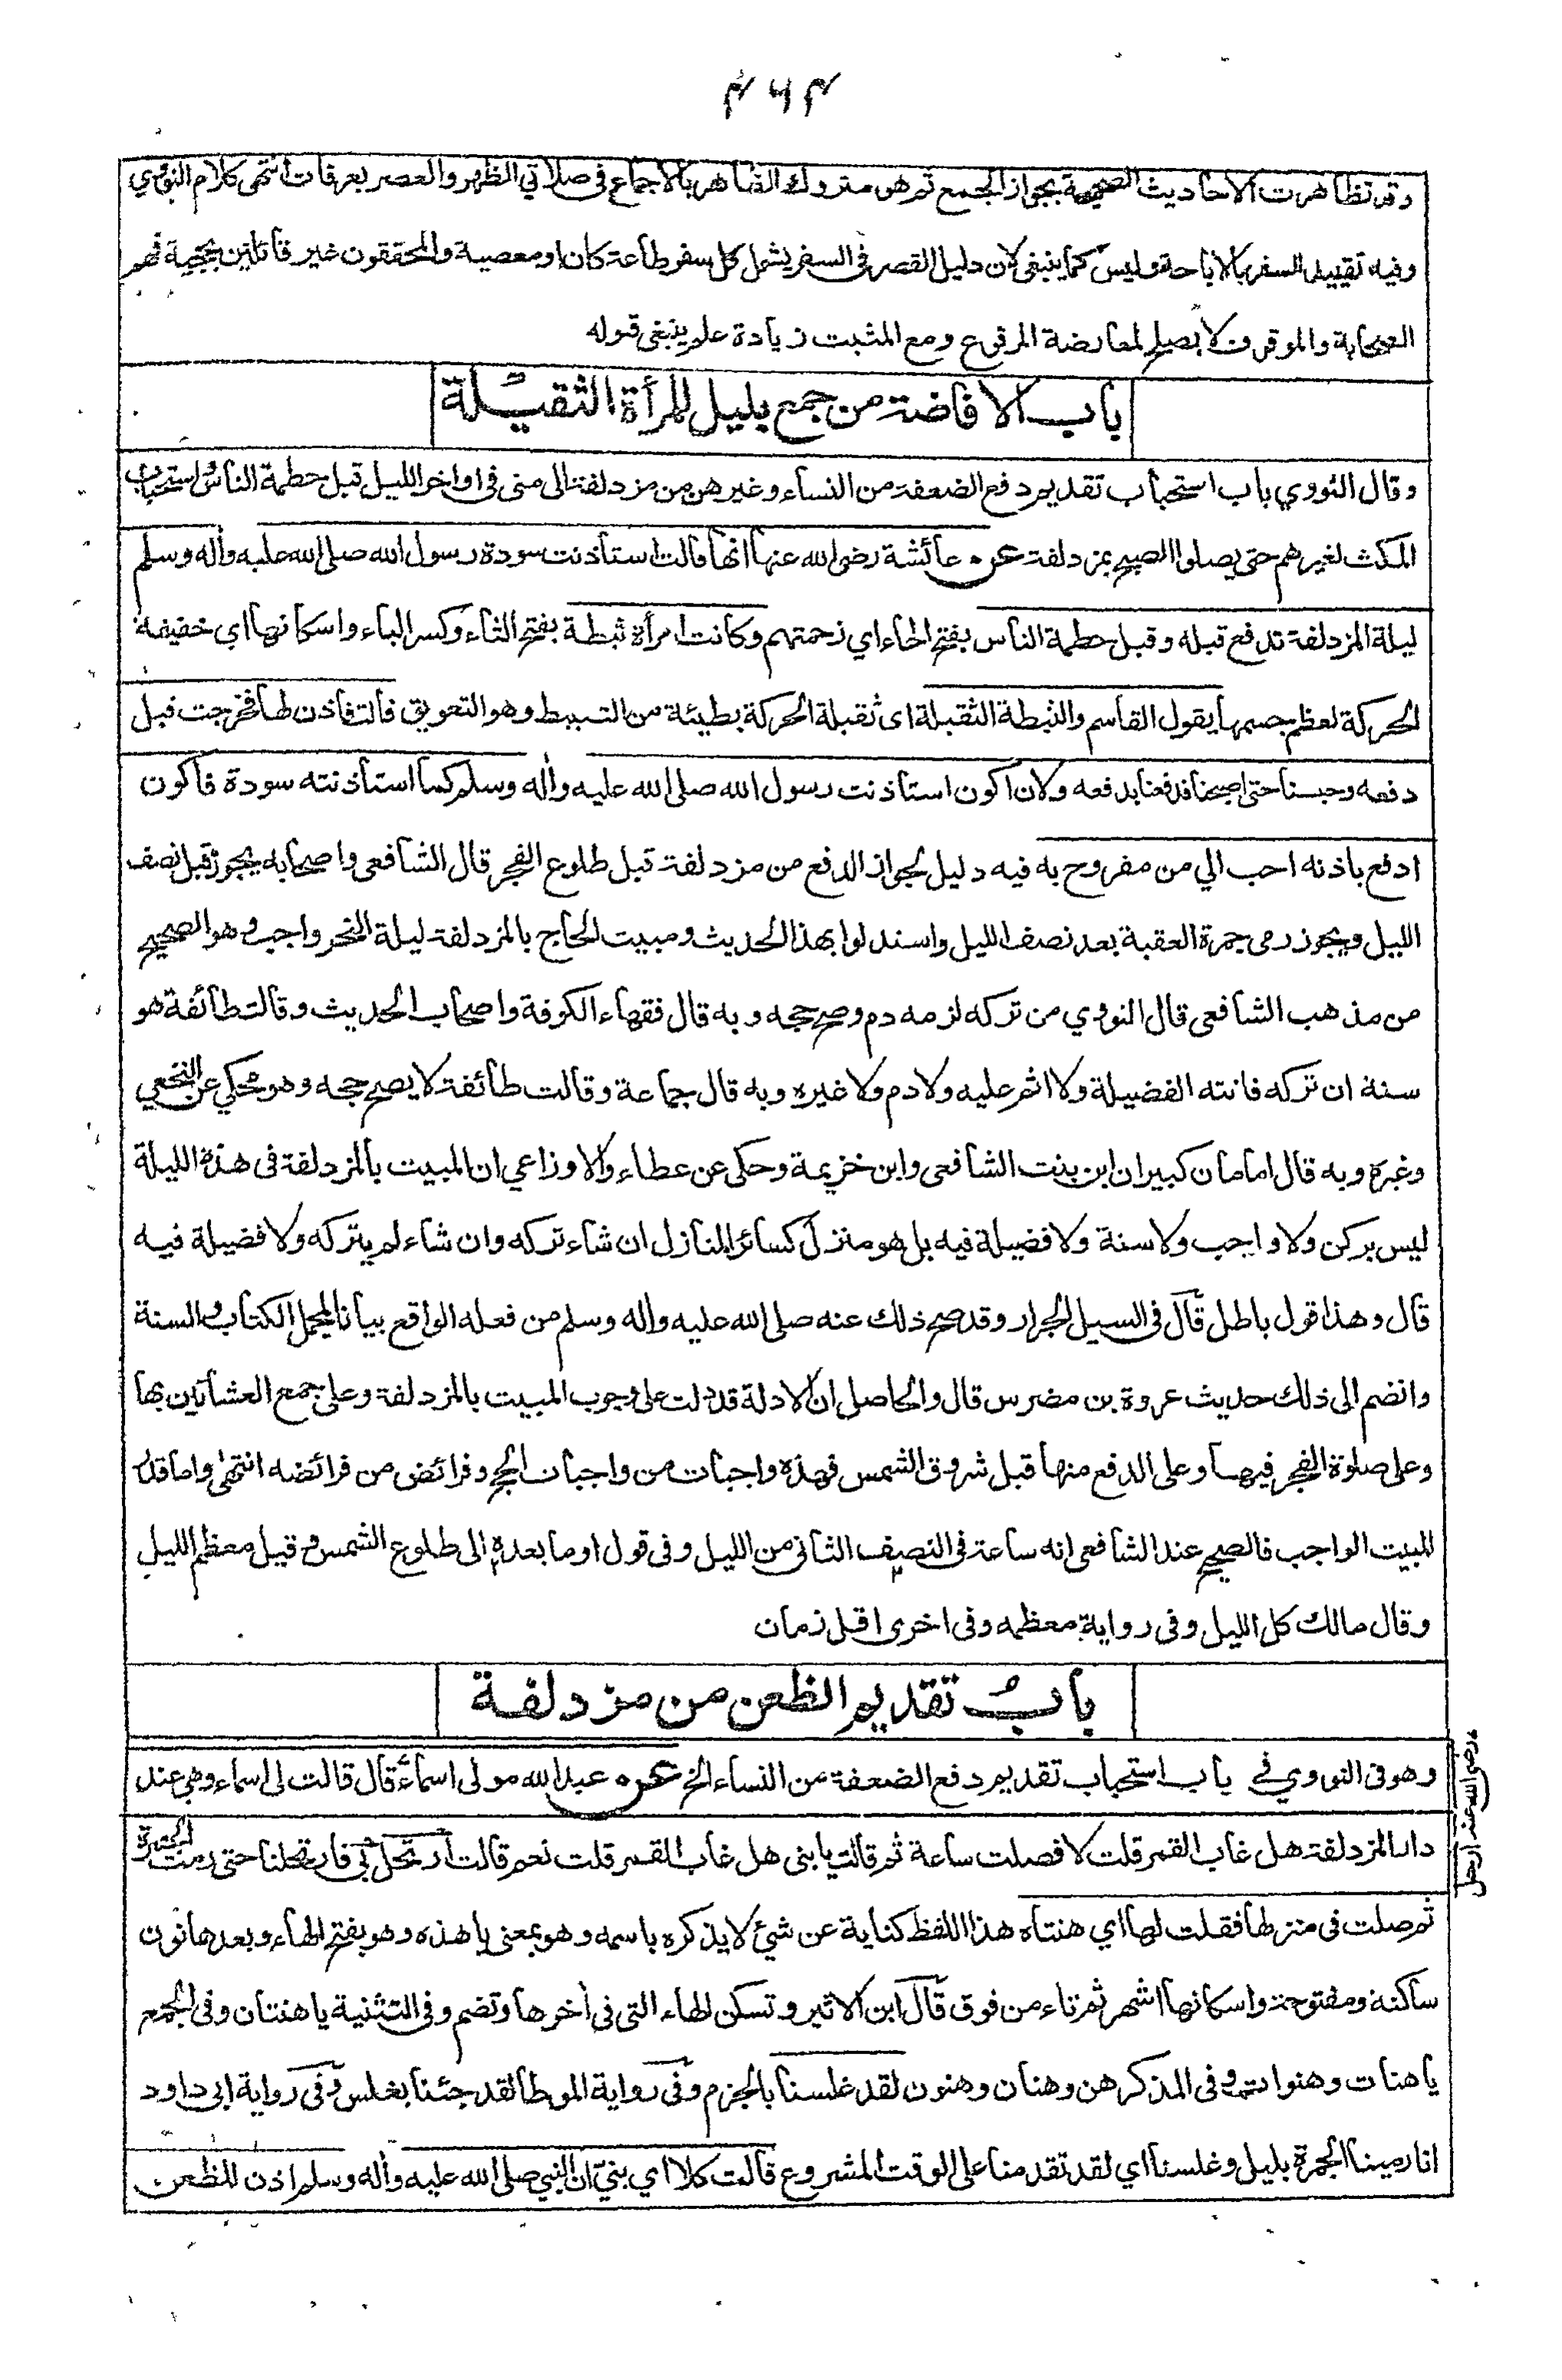 ٤٦٤
وقد تظاهرت الاحاديث الصحيحة بجواز الجمع ثم هو متروك الظاهر بالاجماع في صلاتي الظهر والعصر بعرفات انتهى كلام النووي
وفيه تقييد السفر بالاباحة وليس كما ينبغي لان دليل القصر في السفر يشمل كل سفر طاعة كان او معصية والمحققون غير قائلين بحجية فهم
الصحابة والموقوف لا يصلح لمعارضة المرفوع ومع المثبت زيادة علم ينبغي قوله
باب الافاضة من جمع بليل للمرأة الثقيلة
وقال النووي باب استحباب تقديم دفع الضعفة من النساء وغيرهن من مزدلفة الى منى في اواخر الليل قبل حطمة الناس واستحباب
المكث لغيرهم حتى يصلوا الصبح بمزدلفة عن عائشة رضي الله عنها انها قالت استأذنت سودة رسول الله صلى الله عليه وآله وسلم
ليلة المزدلفة تدفع قبله وقبل حطمة الناس بفتح الحاء اي زحمتهم وكانت امرأة ثبطة بفتح الثاء وكسر الباء واسكانها اي خفيفة
الحركة لعظم جسمها يقول القاسم والثبطة الثقيلة اى ثقيلة الحركة بطيئة من التثبيط وهو التعويق قالت فاذن لها فخرجت قبل
دفعه وحبسنا حتى اصبحنا فدفعنا بدفعه ولان اكون استاذنت رسول الله صلى الله عليه وآله وسلم كما استأذنته سودة فأكون
ادفع باذنه احب الي من مفروح به فيه دليل لجواز الدفع من مزدلفة قبل طلوع الفجر قال الشافعي واصحابه يجوز قبل نصف
الليل ويجوز رمى جمرة العقبة بعد نصف الليل واستدلوا بهذا الحديث ومبيت الحاج بالمزدلفة ليلة النحر واجب وهو الصحيح
من مذهب الشافعي قال النووي من تركه لزمه دم وصح حجه وبه قال فقهاء الكوفة واصحاب الحديث وقالت طائفة هو
سنة ان تركه فاتته الفضيلة ولا اثم عليه ولا دم ولا غيره وبه قال جماعة وقالت طائفة لا يصح حجه وهو محكي عن النخعي
وغيره وبه قال امامان كبيران ابن بنت الشافعي وابن خزيمة وحكى عن عطاء والاوزاعي ان المبيت بالمزدلفة في هذه الليلة
ليس بركن ولا واجب ولا سنة ولا فضيلة فيه بل هو منزل كسائر المنازل ان شاء تركه وان شاء لم يتركه ولا فضيلة فيه
قال وهذا قول باطل قال في السيل الجرار وقد صح ذلك عنه صلى الله عليه وآله وسلم من فعله الواقع بيانا لمجمل الكتاب والسنة
وانضم الى ذلك حديث عروة بن مضرس قال والحاصل ان الادلة قد دلت على وجوب المبيت بالمزدلفة وعلى جمع العشائين بها
وعلى صلوة الفجر فيها وعلى الدفع منها قبل شروق الشمس فهذه واجبات من واجبات الحج وفرائض من فرائضه انتهى واما قدر
المبيت الواجب فالصحيح عند الشافعي انه ساعة في النصف الثاني من الليل وفي قول او ما بعده الى طلوع الشمس وقيل معظم الليل
وقال مالك كل الليل وفي رواية معظمه وفي اخرى اقل زمان
باب تقديم الظعن من مزدلفة
وهو في النووي في باب استحباب تقديم دفع الضعفة من النساء الخ عن عبد الله مولى اسماء قال قالت لي اسماء وهي عند
دار المزدلفة هل غاب القمر قلت لا فصلت ساعة ثم قالت يا بنى هل غاب القمر قلت نعم قالت ارتحل بي فارتحلنا حتى رمت الجمرة
ثم صلت في منزلها فقلت لها اي هنتاه هذا اللفظ كناية عن شيئ لا يذكره باسمه وهو بمعنى يا هذه وهو بفتح الهاء وبعدها نون
ساكنة ومفتوحة واسكانها اشهر ثم تاء من فوق قال ابن الاثير وتسكن الهاء التي في أخرها وتضم وفي التثنية يا هنتان وفي الجمع
يا هنات وهنوات وفي المذكر هن وهنان وهنون لقد غلسنا بالجزم وفي رواية الموطا لقد جئنا بغلس وفي رواية ابي داود
انا رمينا الجمرة بليل وغلسنا اي لقد تقدمنا على الوقت المشروع قالت كلا اي بنيّ ان النبي صلى الله عليه وآله وسلم اذن للظعن